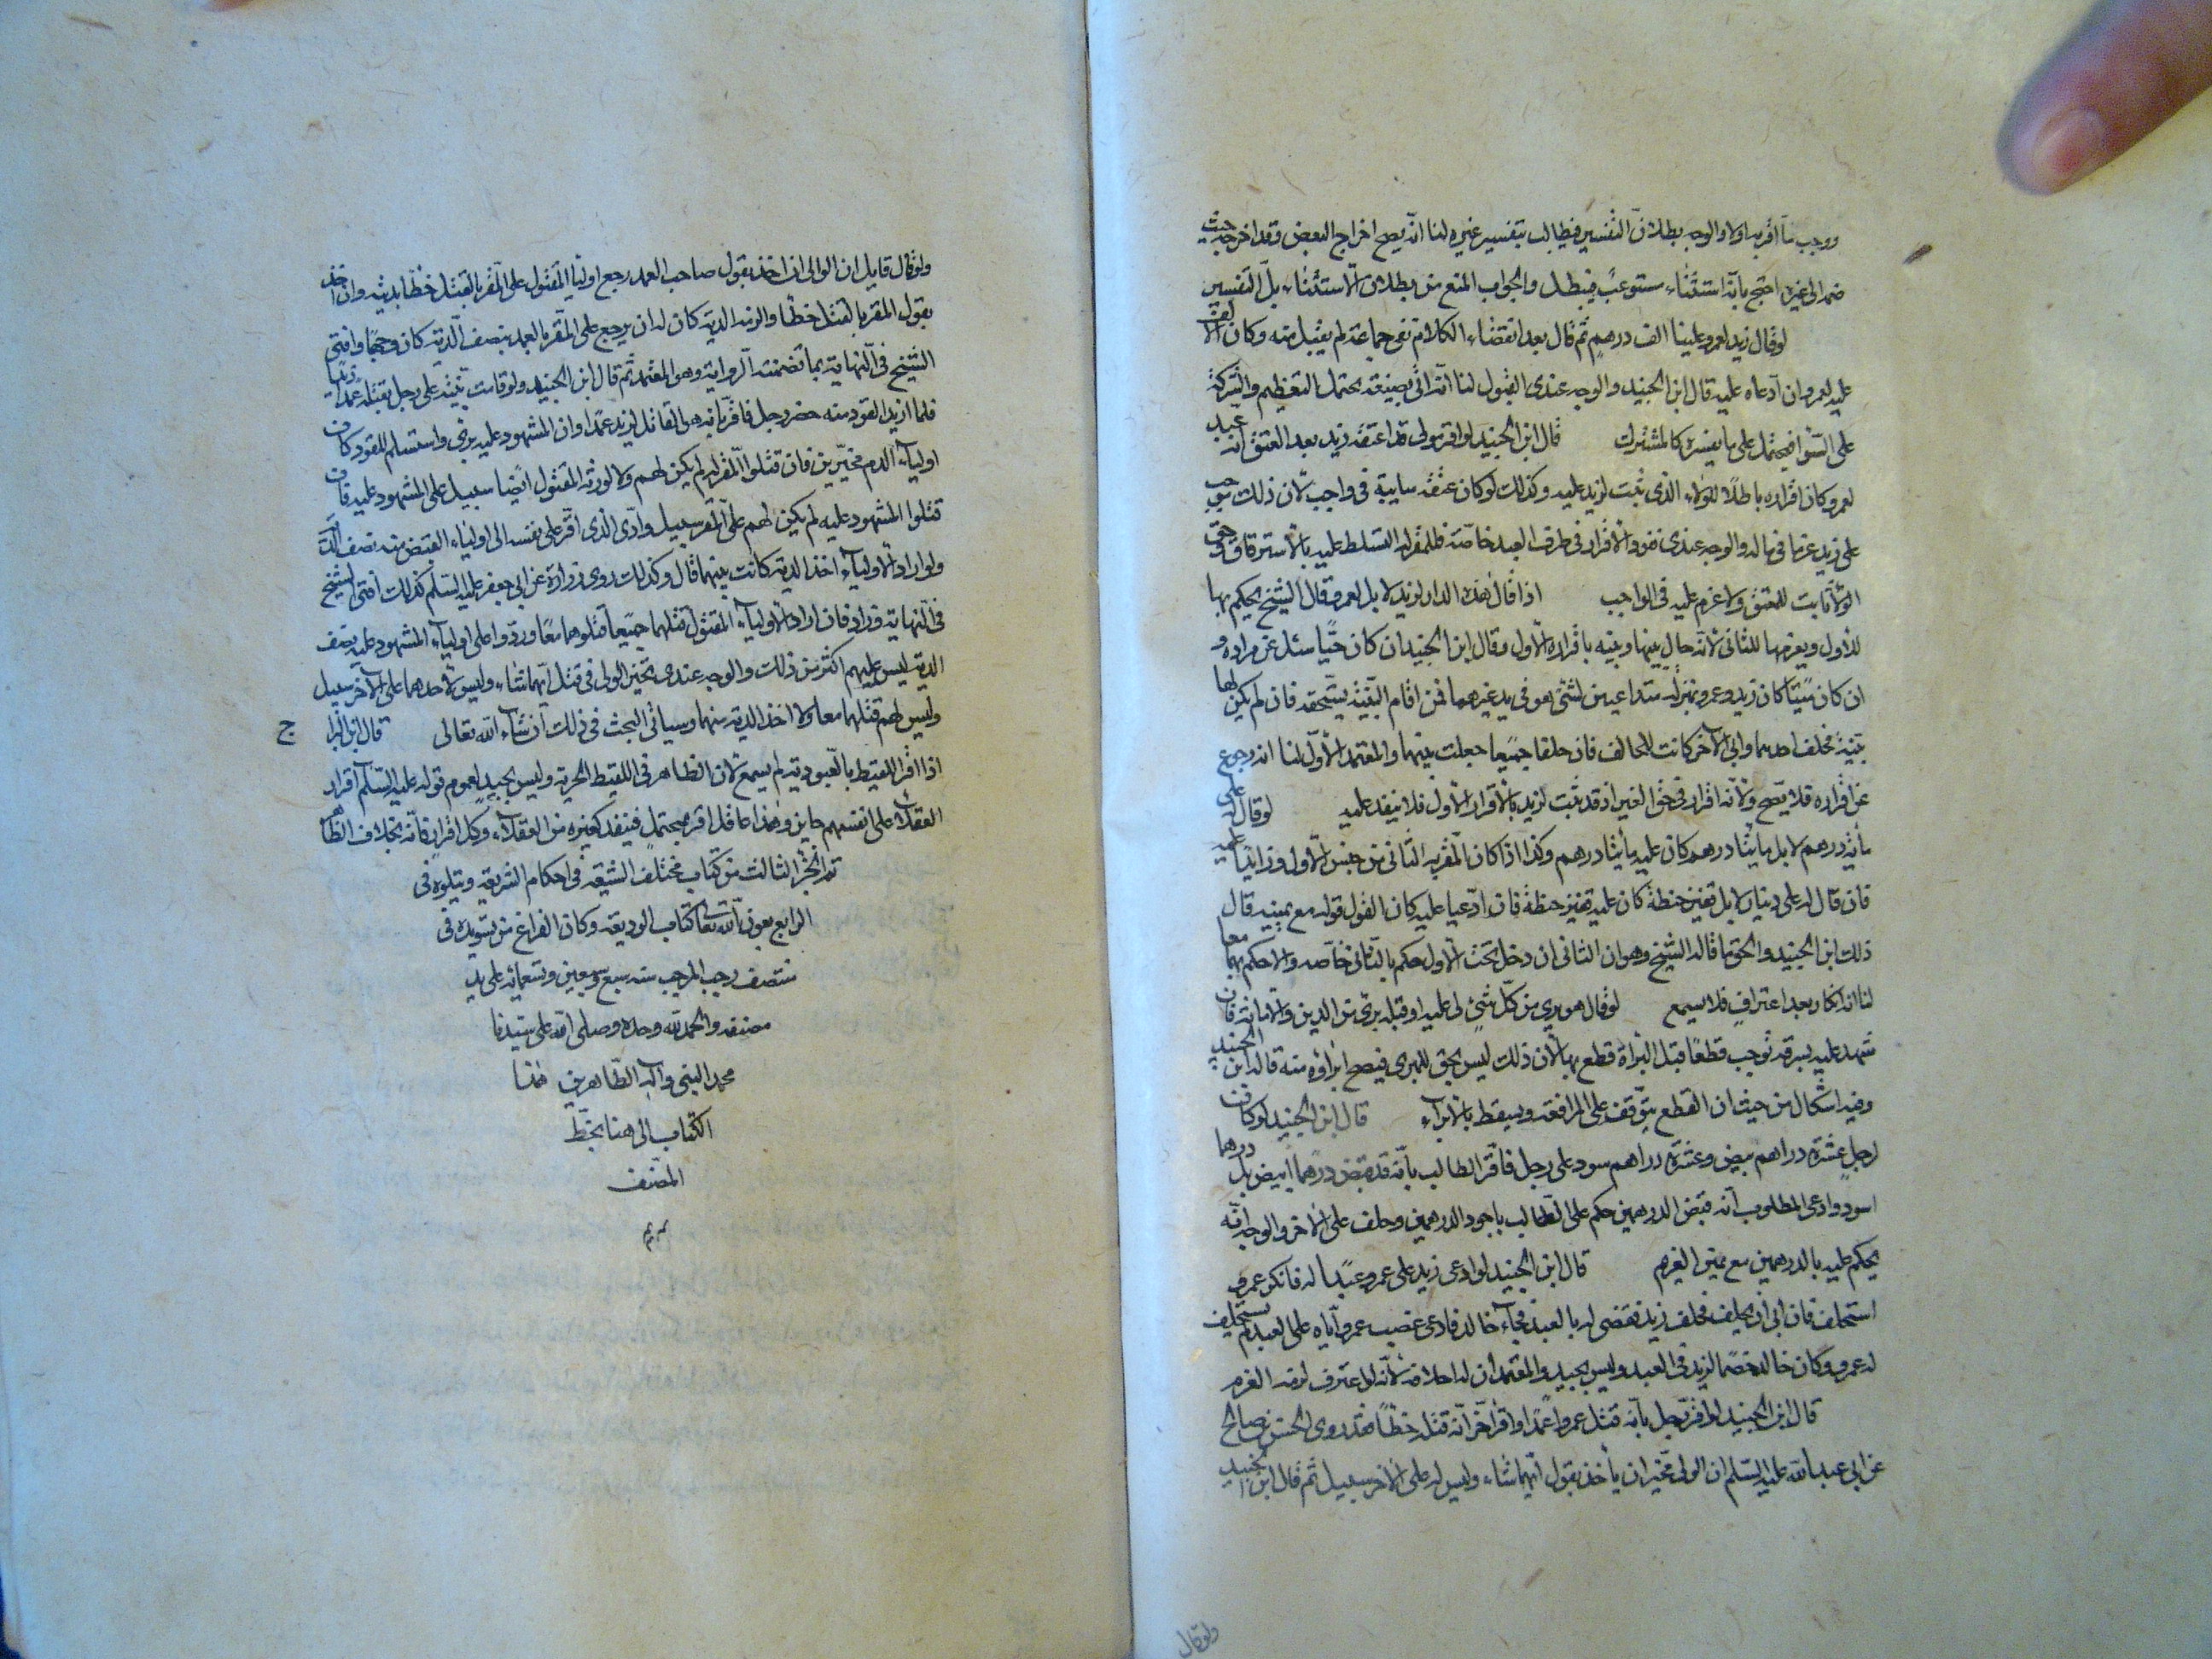 ووجب ما اقر به اولا والوجه بطلان التفسير فيطالب بتفسير غيره لنا انه يصح اخراج البعض وقد اخرجه حيث
ضمه الى غيره احتج بانه استثناء مستوعب فيبطل والجواب المنع من بطلان الاستثناء بل التفسير
لو قال زيد لعمرو علينا الف درهم ثم قال بعد انقضاء الكلام نفى جماعة لم يقبل منه وكان الالف
عليه لعمرو ان ادعاه عليه قال ابن الجنيد والوجه عندي القبول لنا انه اتى بصيغة يحتمل التعظيم والشركة
على السواء فيحتمل على ما يفسره كالمشترك قال ابن الجنيد لو اقر مولى قد اعتقه زيد بعد العتق انه عبد
لعمرو كان اقراره باطلا للولاء الذي ثبت لزيد عليه وكذلك لو كان عتقه سايبة في واجب لان ذلك يوجب
على زيد غرما في ماله والوجه عندي نفوذ الاقرار في طرف العبد خاصة فللمقر له التسلط عليه بالاسترقاق وحق
الولاء ثابت للمعتق ولا غرم عليه في الواجب اذا قال هذه الدار لزيد لا بل لعمرو قال الشيخ يحكم بها
للاول ويغرمها للثاني لانه حال بينها وبينه باقراره الاول وقال ابن الجنيد ان كان حيا سئل عن مراده و
ان كان ميتا كان زيد وعمرو بمنزلة متداعيين لشئ هو في يد غيرهما فمن اقام البينة يستحقه فان لم يكن لها
بينة فحلف احدهما وابى الاخر كانت للحالف فان حلفا جميعا جعلت بينهما والمعتمد الاول لنا انه رجوع
عن اقراره فلا يصح ولانه اقرار في حق الغير اذ قد ثبت لزيد بالاقرار الاول فلا ينفذ عليه لو قال له علي
مأية درهم لا بل مأيتا درهم كان عليه مأيتا درهم وكذا اذا كان المقر به الثاني من جنس الاول وزايدا عليه
فان قال له علي دينار لا بل قفيز حنطة كان عليه قفيز حنطة فان ادعيا عليه كان القول قوله مع يمينه قال
ذلك ابن الجنيد والحق ما قاله الشيخ وهو ان الثاني ان دخل تحت الاول حكم بالثاني خاصة والا حكم بهما معا
لنا انه انكار بعد اعتراف فلا يسمع لو قال هو بري من كل شئ لي عليه او قبله برئ من الدين والامانة فان
شهد عليه بسرقة توجب قطعا قبل البراة قطع بها لان ذلك ليس بحق للمبري فيصح ابراؤه منه قاله ابن الجنيد
وفيه اشكال من حيث ان القطع يتوقف على المرافعة ويسقط بالابراء قال ابن الجنيد لو كان
لرجل عشرة دراهم بيض وعشرة دراهم سود على رجل فاقر الطالب بانه قد قبض درهما ابيض بل درهما
اسود وادعى المطلوب انه قبض الدرهمين حكم على الطالب باجود الدرهمين وحلف على الاخر والوجه انه
يحكم عليه بالدرهمين مع يمين الغريم قال ابن الجنيد لو ادعى زيد على عمرو عبدا له فانكر عمرو
استحلف فان ابى ان يحلف فحلف زيد فقضى له بالعبد فجاء خالد فادعى غصب عمرو اياه على العبد لم يستحلف
له عمرو وكان خالد خصما لزيد في العبد وليس بجيد والمعتمد ان له احلافه لانه لو اعترف لزمه الغرم
قال ابن الجنيد لو اقر رجل بانه قتل عمروا عمدا واقر اخر انه قتله خطأ فقد روى الحسن بن صالح
عن ابي عبد الله عليه السلم ان الولي مخير ان يأخذ بقول ايهما شاء وليس له على الاخر سبيل ثم قال ابن الجنيد
ولو قال
ولو قال قايل ان الوالي اذا اخذ بقول صاحب العمد رجع اولياء المقتول على المقر بالقتل خطأ بديته وان اخذ
بقول المقر بالقتل خطأ والزمه الدية كان له ان يرجع على المقر بالعمد بنصف الدية كان وجها وافتى
الشيخ في النهاية بما تضمنته الرواية وهو المعتمد ثم قال ابن الجنيد ولو قامت بينة على رجل بقتله عمدا زيدا
فلما اريد القود منه حضر رجل فاقر بانه هو القاتل لزيد عمدا وان المشهود عليه بري واستسلم للقود كان
اولياء الدم مخيرين فان قتلوا المقر له لم يكن لهم ولا لورثة المقتول ايضا سبيل على المشهود عليه فان
قتلوا المشهود عليه لم يكن لهم على المقر سبيل وادى الذي اقر على نفسه الى اولياء المقتص منه نصف الدية
ولو اراد الاولياء اخذ الدية كانت بينهما قال وكذلك روى زرارة عن ابي جعفر عليه السلم كذلك افتى الشيخ
في النهاية وزاد فان اراد الاولياء المقتول قتلهما جميعا قتلوهما معا وردوا على اولياء المشهود عليه نصف
الدية ليس عليهم اكثر من ذلك والوجه عندي تخير الولي في قتل ايهما شاء وليس لاحدهما على الاخر سبيل
وليس لهم قتلهما معا ولا اخذ الدية منهما وسياتي البحث في ذلك ان شاء الله تعالى قال ابن البرا
ج
اذا اقر اللقيط بالعبودية لم يسمع لان الظاهر في اللقيط الحرية وليس بجيد لعموم قوله عليه السلم اقرار
العقلاء على انفسهم جايز وهذا عاقل اقر بمحتمل فينفذ كغيره من العقلاء وكل اقرار فانه بخلاف الظاهر
تم الجزء الثالث من كتاب مختلف الشيعة في احكام الشريعة ويتلوه في
الرابع بعون الله تعالى كتاب الوديعة وكان الفراغ من تسويده في
منتصف رجب المرجب سنة سبع وسبعين وتسعمائة على يد
مصنفه والحمد لله وحده وصلى الله على سيدنا
محمد النبي وآله الطاهرين هذا
الكتاب الى هنا بخط
المصنف